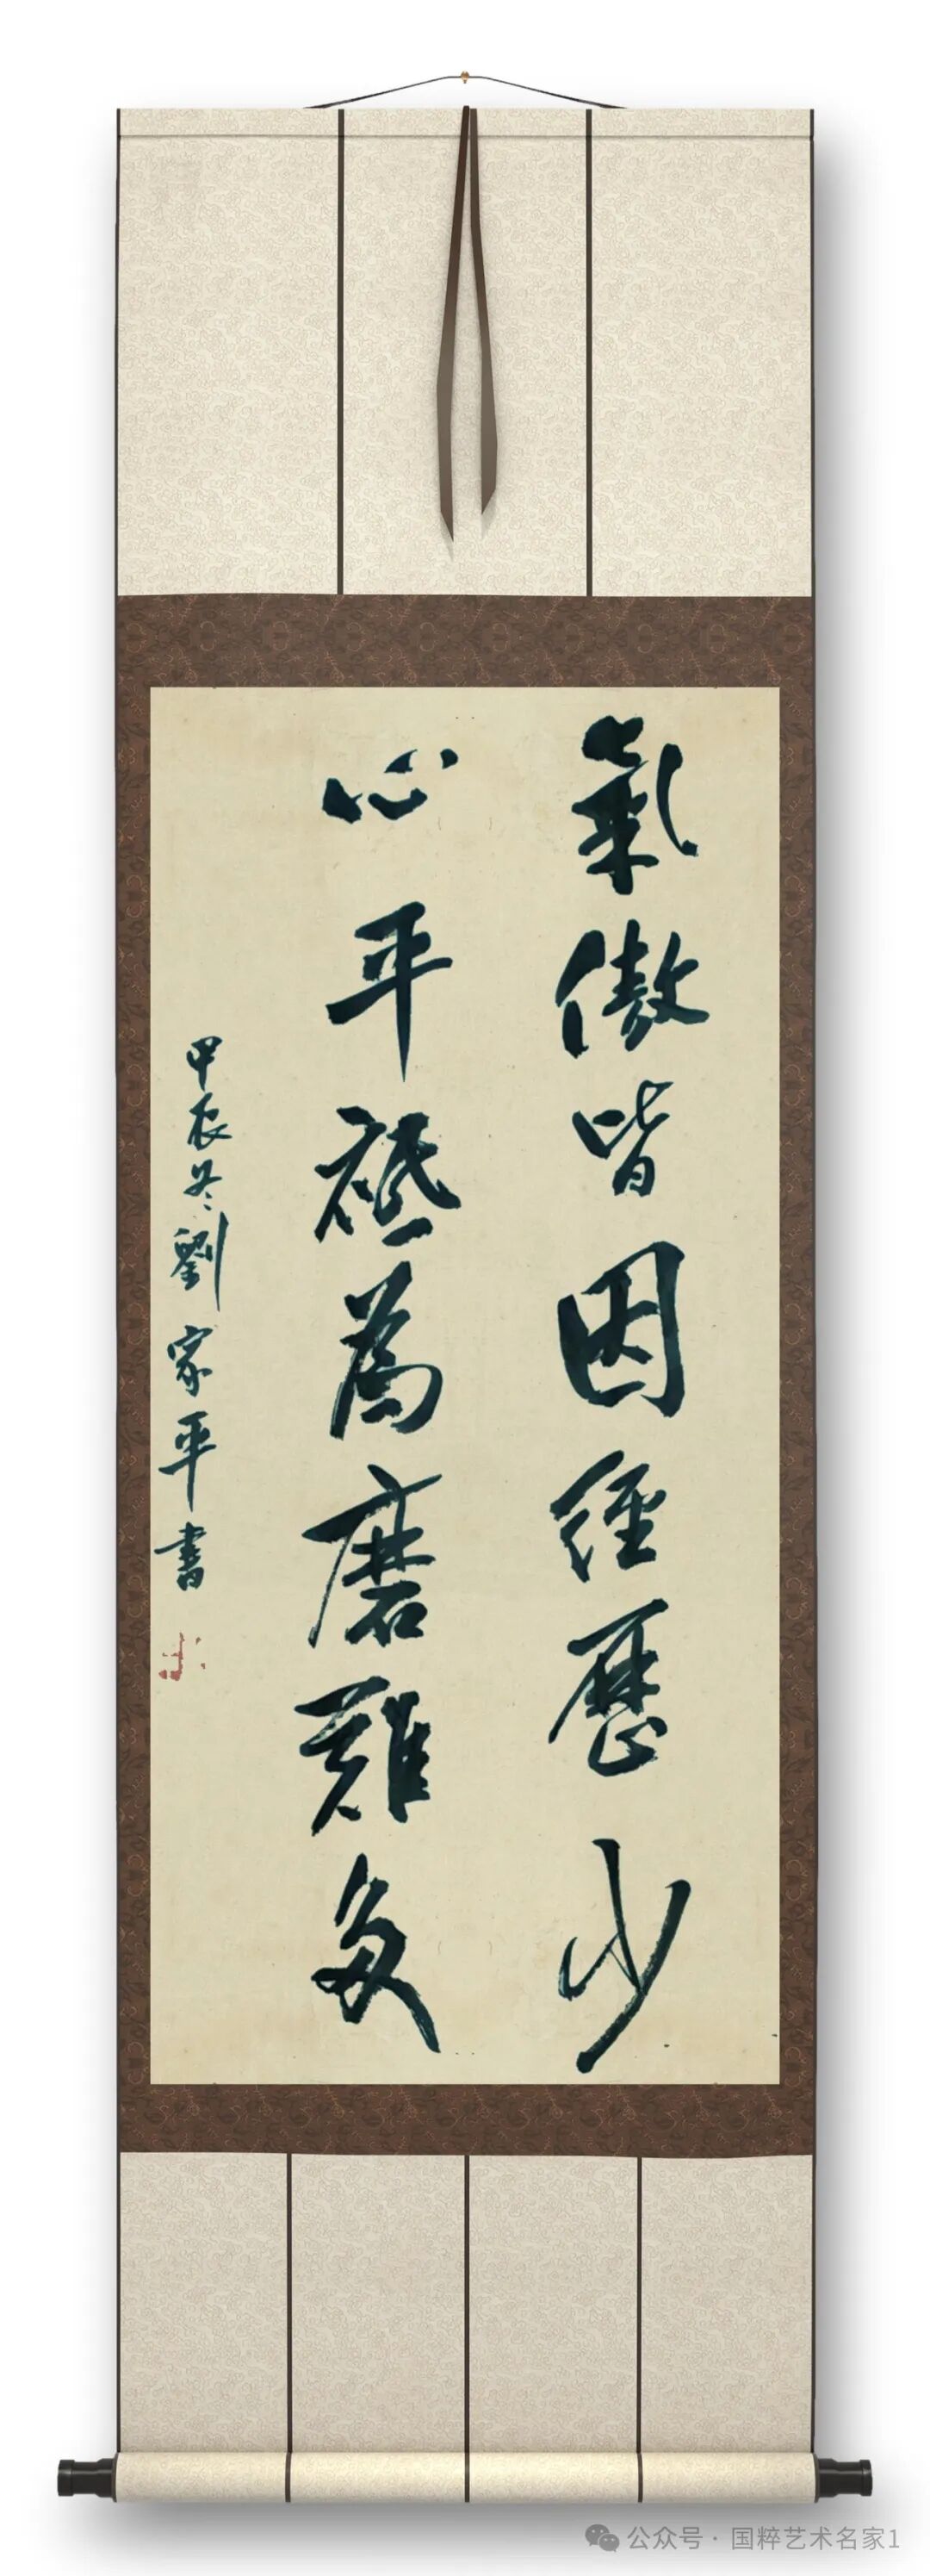 氣傲皆因經歷少
心平祗為磨難多
甲辰冬劉家平書
公众号·国粹艺术名家1